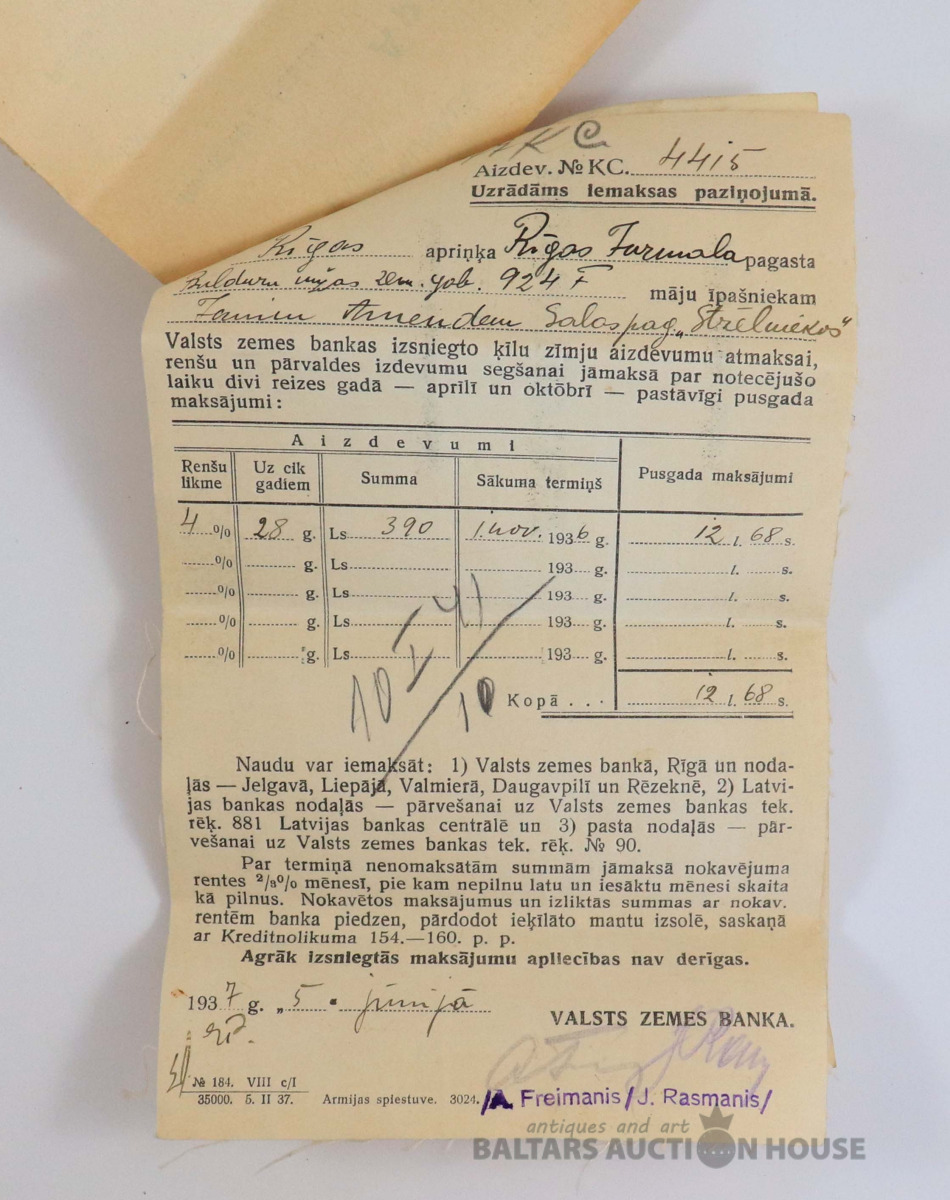 K C.
Aizdev. № KC. 4415
Uzrādāms iemaksas paziņojumā.
Rīgas apriņķa Rīgas Jurmala pagasta
Bulduru muižas zem. gab. 924 F māju īpašniekam
Salaspag. „Strēlniekos"
Valsts zemes bankas izsniegto ķīlu zīmju aizdevumu atmaksai,
renšu un pārvaldes izdevumu segšanai jāmaksā par notecējušo
laiku divi reizes gadā — aprīlī un oktōbrī — pastāvīgi pusgada
maksājumi:
Aizdevumi
Renšu likme Uz cik gadiem Summa Sākuma termiņš Pusgada maksājumi
4 % 28 g. Ls 390 1. nov. 1936 g. 12 l. 68 s.
% g. Ls 193 g. l. s.
% g. Ls 193 g. l. s.
% g. Ls 193 g. l. s.
% g. Ls 193 g. l. s.
10 I 41
10
Kopā . . . 12 l. 68 s.
Naudu var iemaksāt: 1) Valsts zemes bankā, Rīgā un noda-
ļās — Jelgavā, Liepājā, Valmierā, Daugavpilī un Rēzeknē, 2) Latvi-
jas bankas nodaļās — pārvešanai uz Valsts zemes bankas tek.
rēķ. 881 Latvijas bankas centrālē un 3) pasta nodaļās — pār-
vešanai uz Valsts zemes bankas tek. rēķ. № 90.
Par termiņā nenomaksātām summām jāmaksā nokavējuma
rentes ²/₃% mēnesī, pie kam nepilnu latu un iesāktu mēnesi skaita
kā pilnus. Nokavētos maksājumus un izliktās summas ar nokav.
rentēm banka piedzen, pārdodot ieķīlāto mantu izsolē, saskaņā
ar Kreditnolikuma 154.—160. p. p.
Agrāk izsniegtās maksājumu apliecības nav derīgas.
1937 g. „5" jūnijā
VALSTS ZEMES BANKA.
№ 184. VIII c/I
35000. 5. II 37. Armijas spiestuve. 3024.
/A. Freimanis/ J. Rasmanis/
antiques and art
BALTARS AUCTION HOUSE